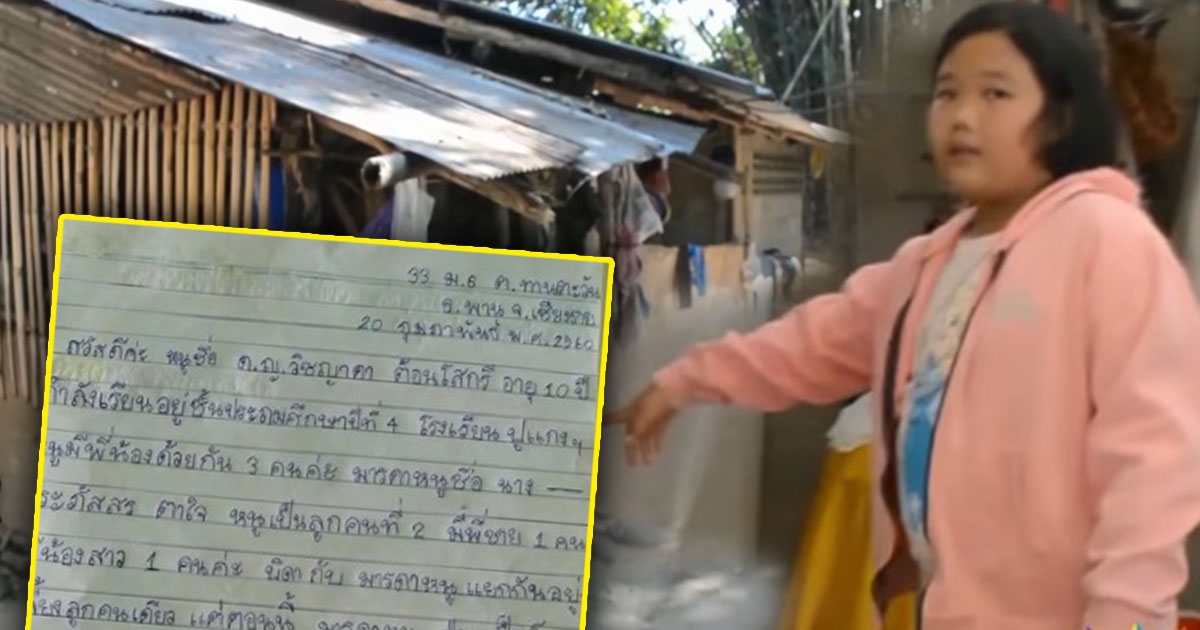 33 ม.6 ต.ทานตะวัน
อ.พาน จ.เชียงราย
20 กุมภาพันธ์ พ.ศ.2560
สวัสดีค่ะ หนูชื่อ ด.ญ.วิชญาดา ต้อนโสกรี อายุ 10 ปี
กำลังเรียนอยู่ชั้นประถมศึกษาปีที่ 4 โรงเรียน ปูแกงฯ
หนูมีพี่น้องด้วยกัน 3 คนค่ะ มารดาหนูชื่อ นาง —
ระภัสสร ตาใจ หนูเป็นลูกคนที่ 2 มีพี่ชาย 1 คน
น้องสาว 1 คนค่ะ บิดากับ มารดาหนู แยกกันอยู่
ลูกคนเดียว แต่ตอนนี้